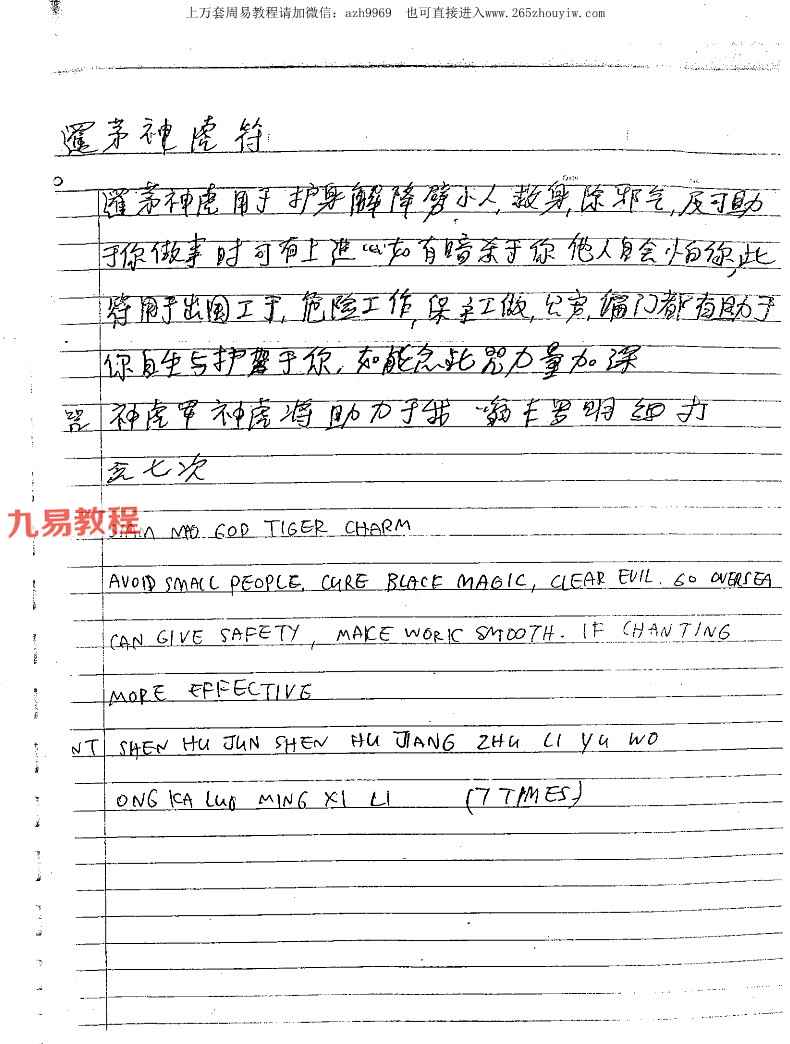 上万套周易教程请加微信：azh9969 也可直接进入www.265zhouyiw.com
暹茅神虎符
暹茅神虎用于护身解降劈小人,救身,除邪气,及可助
于你做事时可有上進心如有暗杀于你他人自会怕你,此
符用于出国工于,危险工作,保主工做,偏门都有助于
你自生与护驾于你,如能念此咒力量加深
咒 神虎軍神虎将助力于我 嗡卡罗明细
念七次
九易教程
MAO GOD TIGER CHARM
AVOID SMALL PEOPLE. CURE BLACK MAGIC, CLEAR EVIL. GO OVERSEA
CAN GIVE SAFETY, MAKE WORK SMOOTH. IF CHANTING
MORE EFFECTIVE
NT SHEN HU JUN SHEN HU JIANG ZHU LI YU WO
ONG KA LUO MING XI LI (7 TIMES)